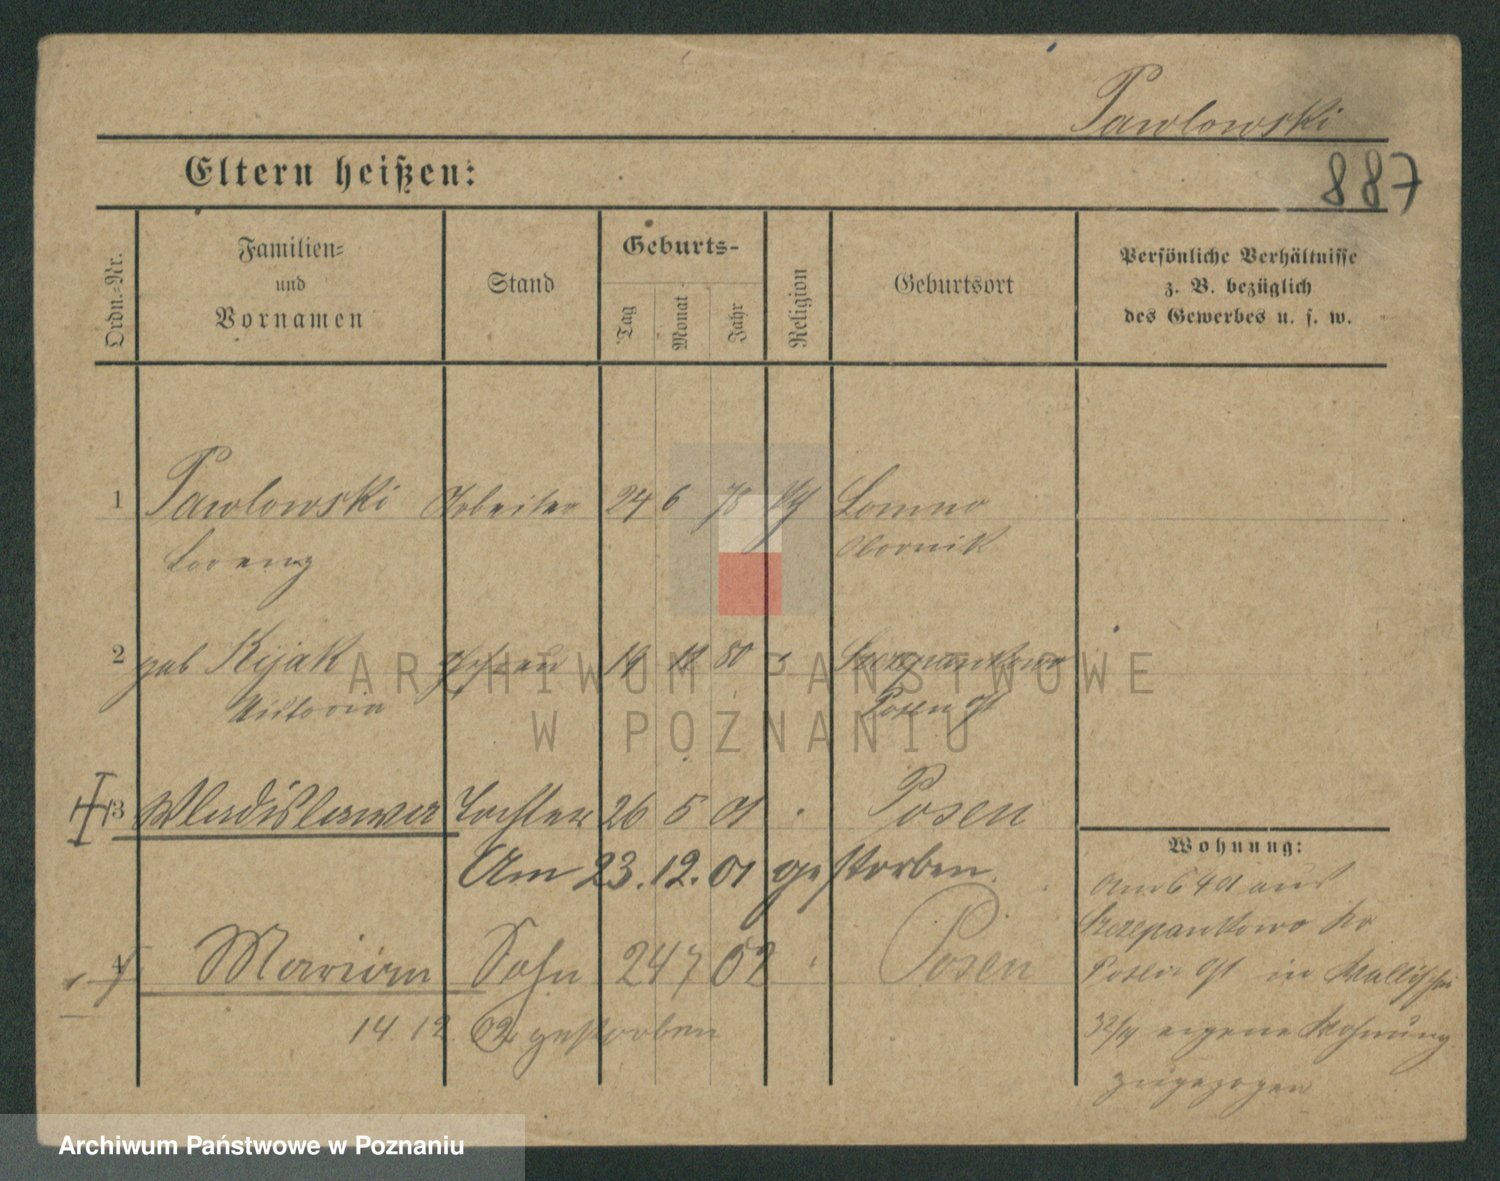 Pawlowski
887
Eltern heißen:
Ordn.=Nr.
Familien=
und
Vornamen
Stand
Geburts-
Tag
Monat
Jahr
Religion
Geburtsort
Persönliche Verhältnisse
z. B. bezüglich
des Gewerbes u. s. w.
1 Pawlowski Arbeiter 24 6 78 Lomno
Lorenz Obornik
2 geb Kijak Ehefrau 14 12 80 Szczepankowo
Victoria Posen Ost
3 Wladislawa Tochter 26 5 01 Posen
Am 23.12.01 gestorben.
4 Marian Sohn 24 7 02 Posen
14.12 02 gestorben
Wohnung:
Am 6 4 01 aus
Szczepankowo Kr
Posen Ost in Wallischei
32/4 eigene Wohnung
zugezogen
ARCHIWUM PAŃSTWOWE
W POZNANIU
Archiwum Państwowe w Poznaniu